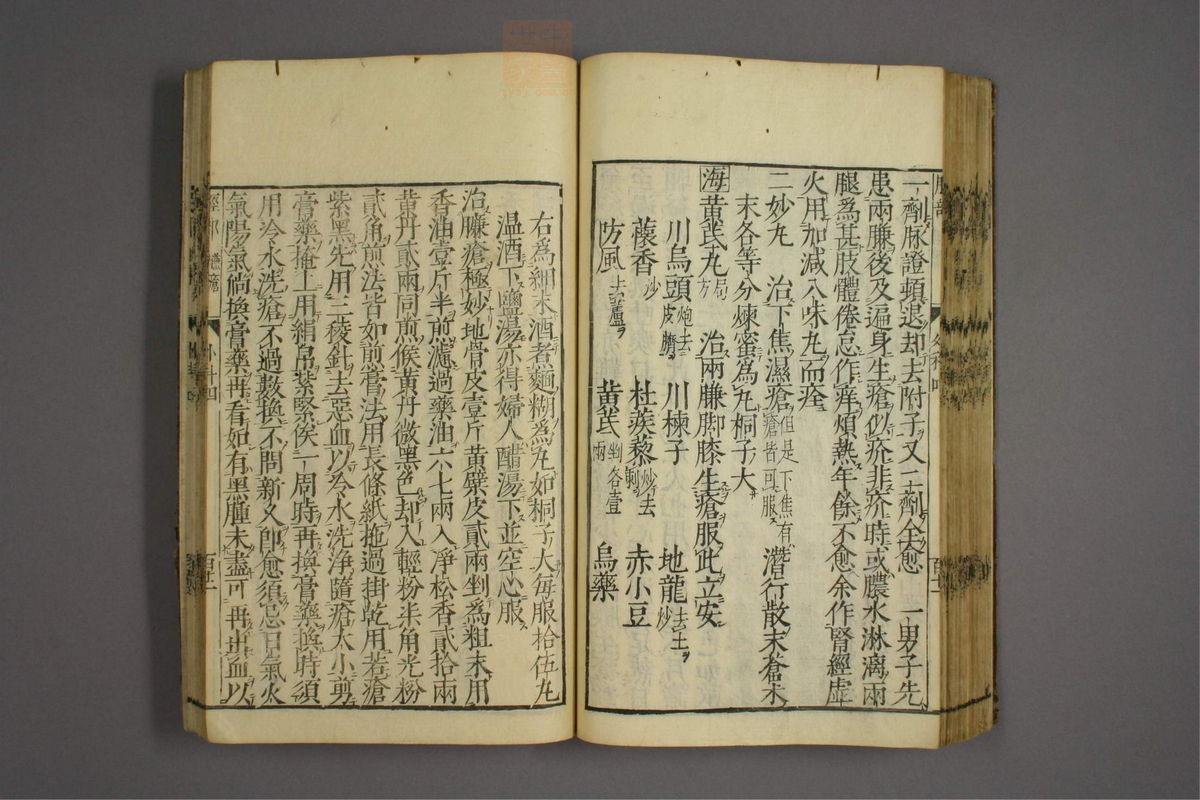 一劑脉證頓退却去附子又二劑全愈　一男子先
患兩臁後及遍身生瘡似疥非疥時或膿水淋漓兩
腿爲甚肢體倦怠作痒煩熱年餘不愈余作腎經虛
火用加減八味丸而痊
二妙丸　治下焦濕瘡但是下焦有瘡皆可服　潛行散末蒼朮
末各等分煉蜜爲丸桐子大
海黃芪丸局方　治兩臁脚膝生瘡服此立安
川烏頭炮去皮臍　川楝子　地龍去土炒
蘹香炒　杜蒺藜炒去刺　赤小豆
防風去蘆　黃芪剉各壹兩　烏藥
右爲細末酒煮麵糊爲丸如桐子大每服拾伍丸
温酒下鹽湯亦得婦人醋湯下並空心服
治臁瘡極妙地骨皮壹斤黃蘗皮貳兩剉爲粗末用
香油壹斤半煎濾過藥油六七兩入淨松香貳拾兩
黃丹貳兩同煎候黃丹微黑色却入輕粉半角光粉
貳角煎法皆如煎膏法用長條紙拖過掛乾用若瘡
紫黑先用三稜針去惡血以冷水洗淨隨瘡大小剪
膏藥掩上用絹帛紮緊俟一周時再換膏藥換時須
用冷水洗瘡不過數換不問新久卽愈須忌日氣火
氣陽氣倘換膏藥再看如有黑腫未盡可再出血以